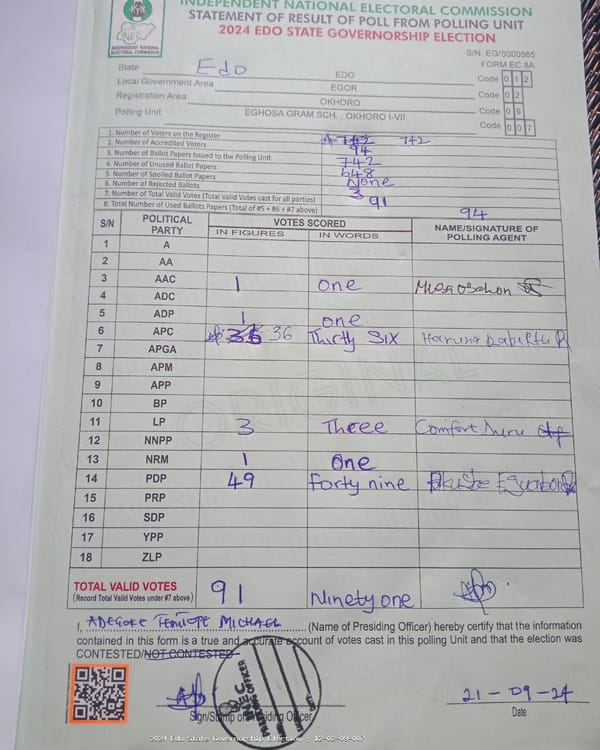 INDEPENDENT NATIONAL ELECTORAL COMMISSION
STATEMENT OF RESULT OF POLL FROM POLLING UNIT
2024 EDO STATE GOVERNORSHIP ELECTION
INDEPENDENT NATIONAL ELECTORAL COMMISSION
S/N: EG/0000565
FORM EC 8A
State Edo EDO Code 0 1 2
Local Government Area EGOR Code 0 2
Registration Area OKHORO Code 0 9
Polling Unit EGHOSA GRAM SCH. , OKHORO I-VII Code 0 0 7
1. Number of Voters on the Register 742 742
2. Number of Accredited Voters 94
3. Number of Ballot Papers Issued to the Polling Unit 742
4. Number of Unused Ballot Papers 648
5. Number of Spoiled Ballot Papers None
6. Number of Rejected Ballots 3
7. Number of Total Valid Votes (Total Valid Votes cast for all parties) 91
8. Total Number of Used Ballots Papers (Total of #5 + #6 + #7 above) 94
S/N POLITICAL PARTY VOTES SCORED NAME/SIGNATURE OF POLLING AGENT
IN FIGURES IN WORDS
1 A
2 AA
3 AAC 1 one
4 ADC
5 ADP 1 one
6 APC 36 36 Thirty Six Haruna
7 APGA
8 APM
9 APP
10 BP
11 LP 3 Three Comfort
12 NNPP
13 NRM 1 One
14 PDP 49 forty nine
15 PRP
16 SDP
17 YPP
18 ZLP
ORIGINAL
TOTAL VALID VOTES 91 Ninety one
(Record Total Valid Votes under #7 above)
I, ADEGOKE TEMITOPE MICHAEL (Name of Presiding Officer) hereby certify that the information
contained in this form is a true and accurate account of votes cast in this polling Unit and that the election was
CONTESTED/NOT CONTESTED
21-09-24
Sign/Stamp of Presiding Officer Date
2024 Edo State Governorship Election : 12-02-09-007